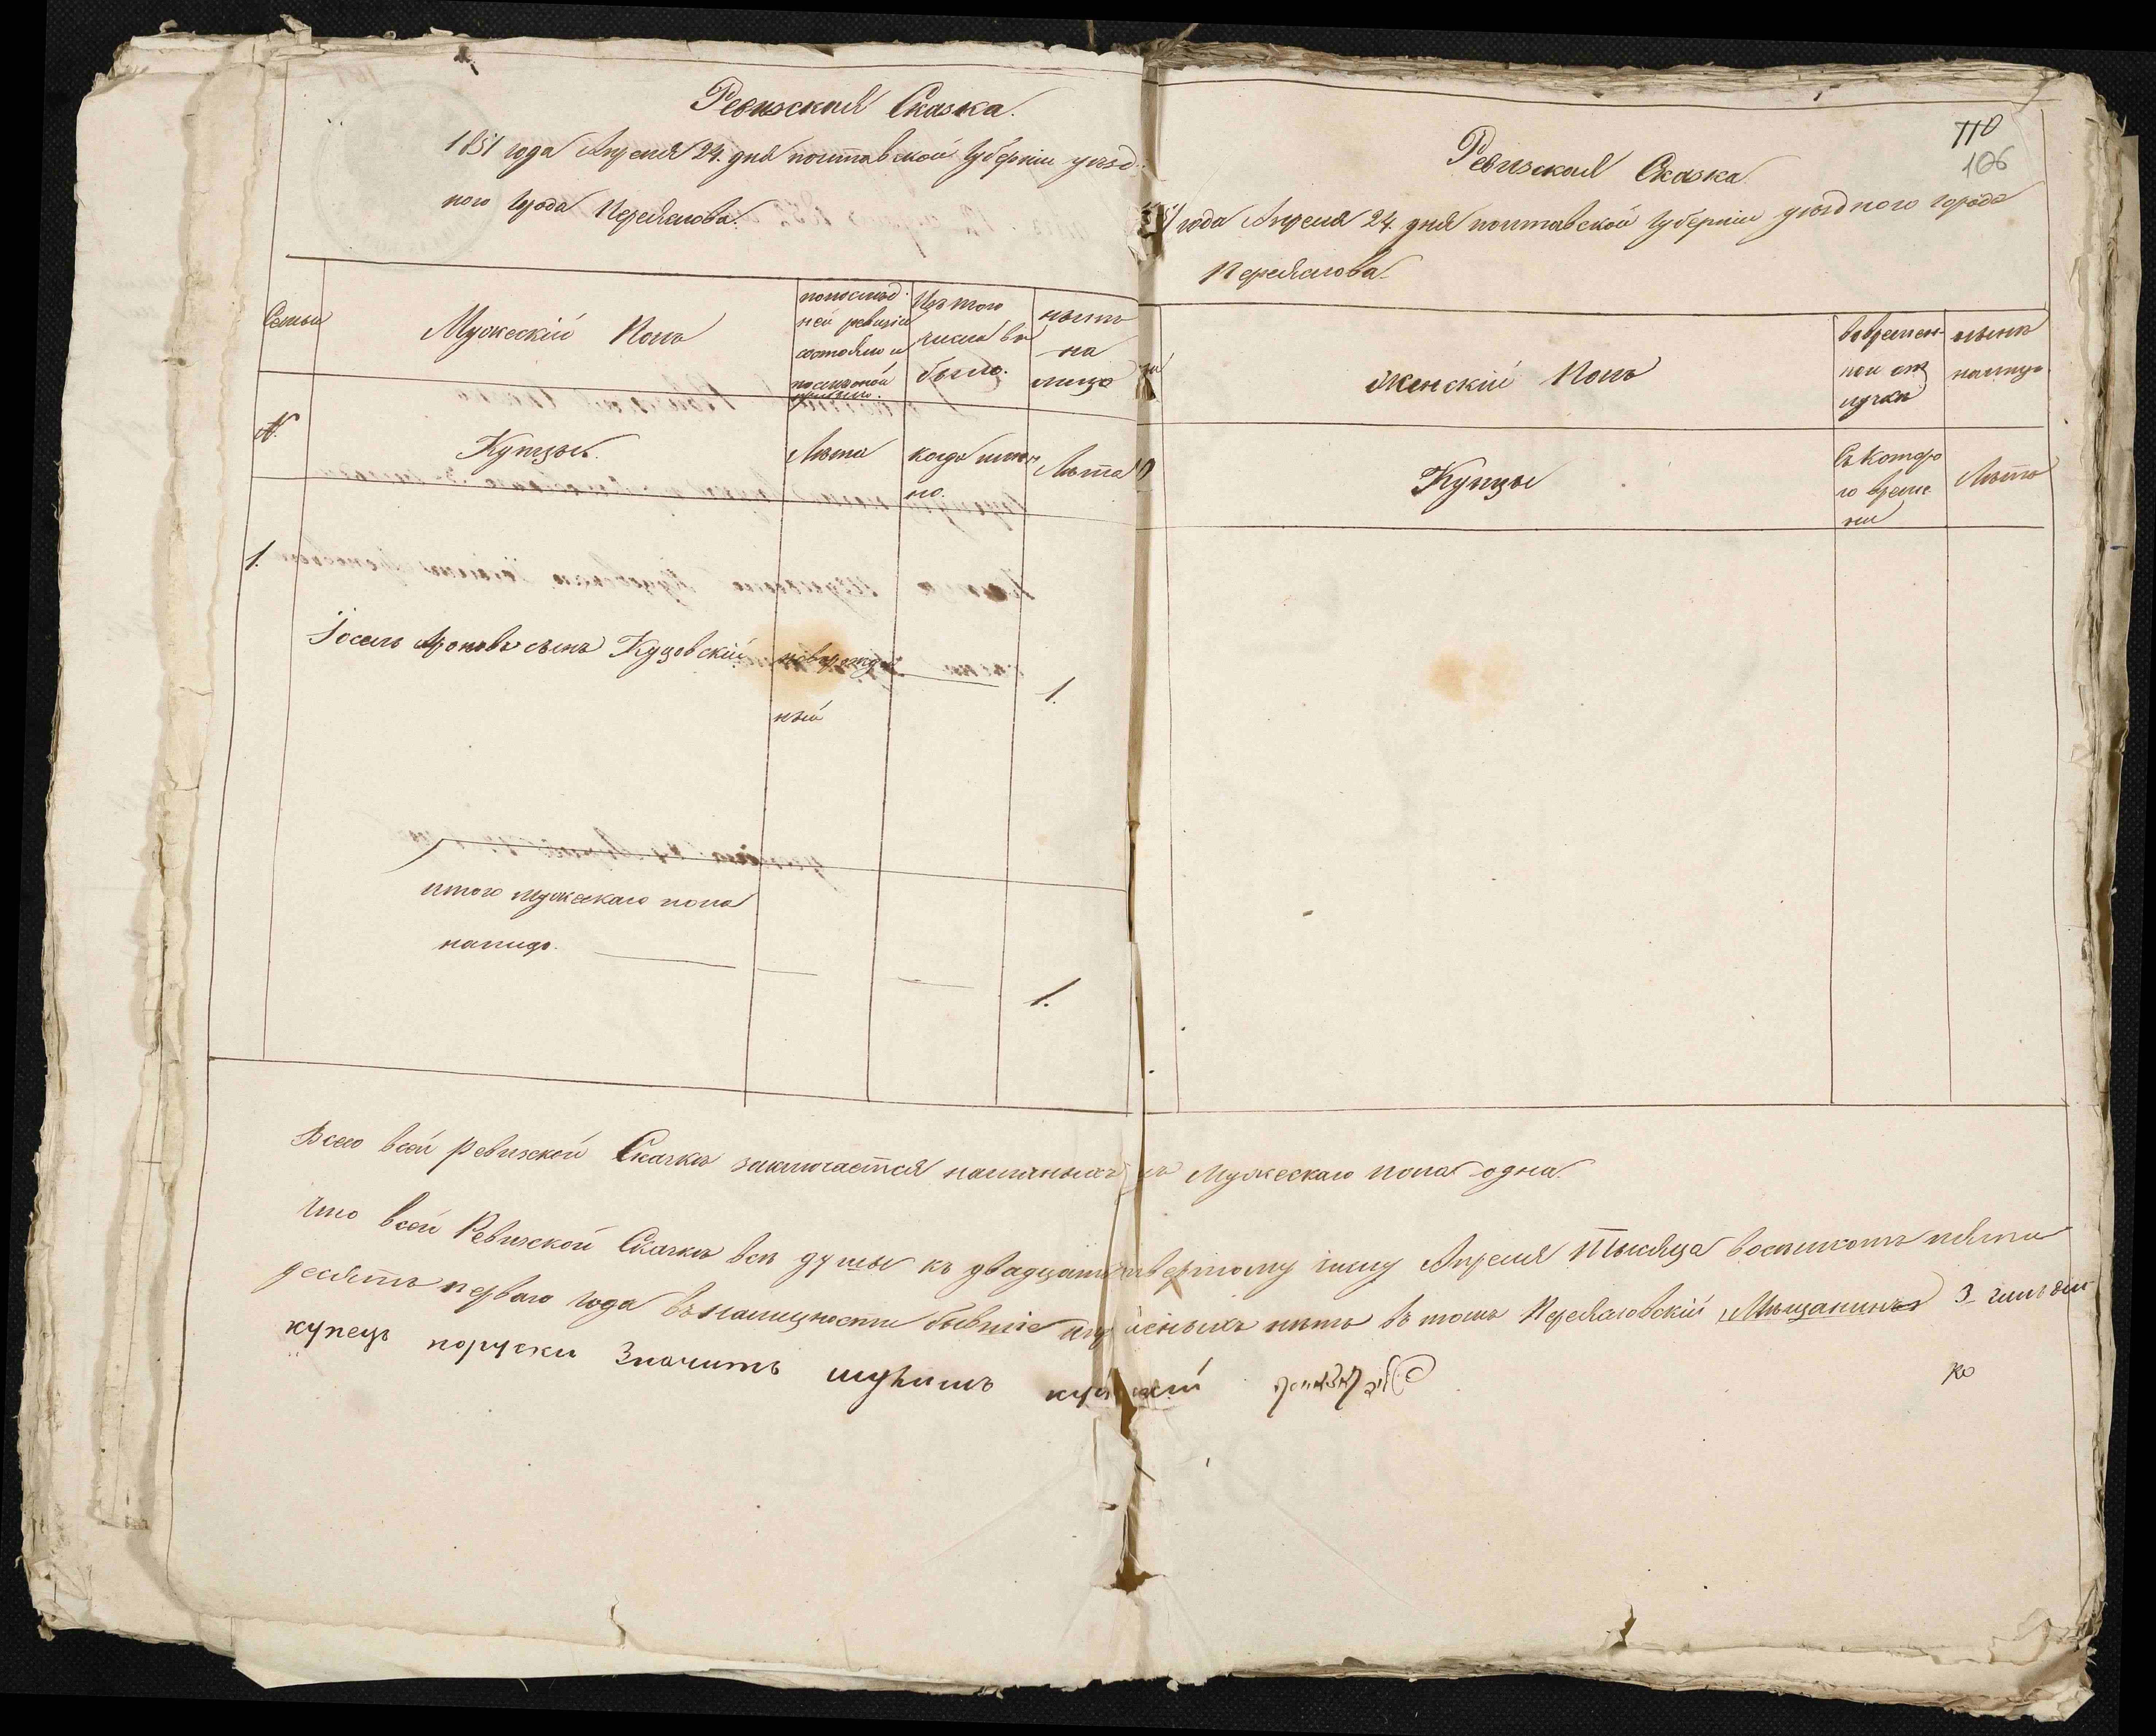 Ревизская Сказка.
1851 года Апреля 24. дня полтавской губернии уезд-
ного города Переяслова.
Семьи
Мужескій Полъ
по послѣд-
ней ревизіи
состояло и
после оной
прибыло.
Изъ того
числа вы
было.
нынѣ
на
лицо
№.
Купцы.
Лѣта
когда имян
но.
Лѣта
1.
Іосель Ароновъ сынъ Куцовскій
новорожден
ный
1.
итого мужескаго пола
налицо.
1.
110
106
Ревизская Сказка
года Апреля 24. дня полтавской губерніи уезднаго города
Переяслова
Женскій Полъ
во времен-
ной от
лучки
нынѣ
налицо
Купцы
Съ которо
го време
ни
Лѣта
Всего в сей ревизской Сказкѣ заключается наличныхъ мужескаго пола одна.
Что в сей Ревизской Сказкѣ всѣ души къ двадцать четвертому числу Апреля Тысяча восемьсотъ пяти
десятъ перваго года въ наличности бывшіе нѣтъ въ томъ Переяславскій Мѣщанинъ 3 гильдии
купецъ